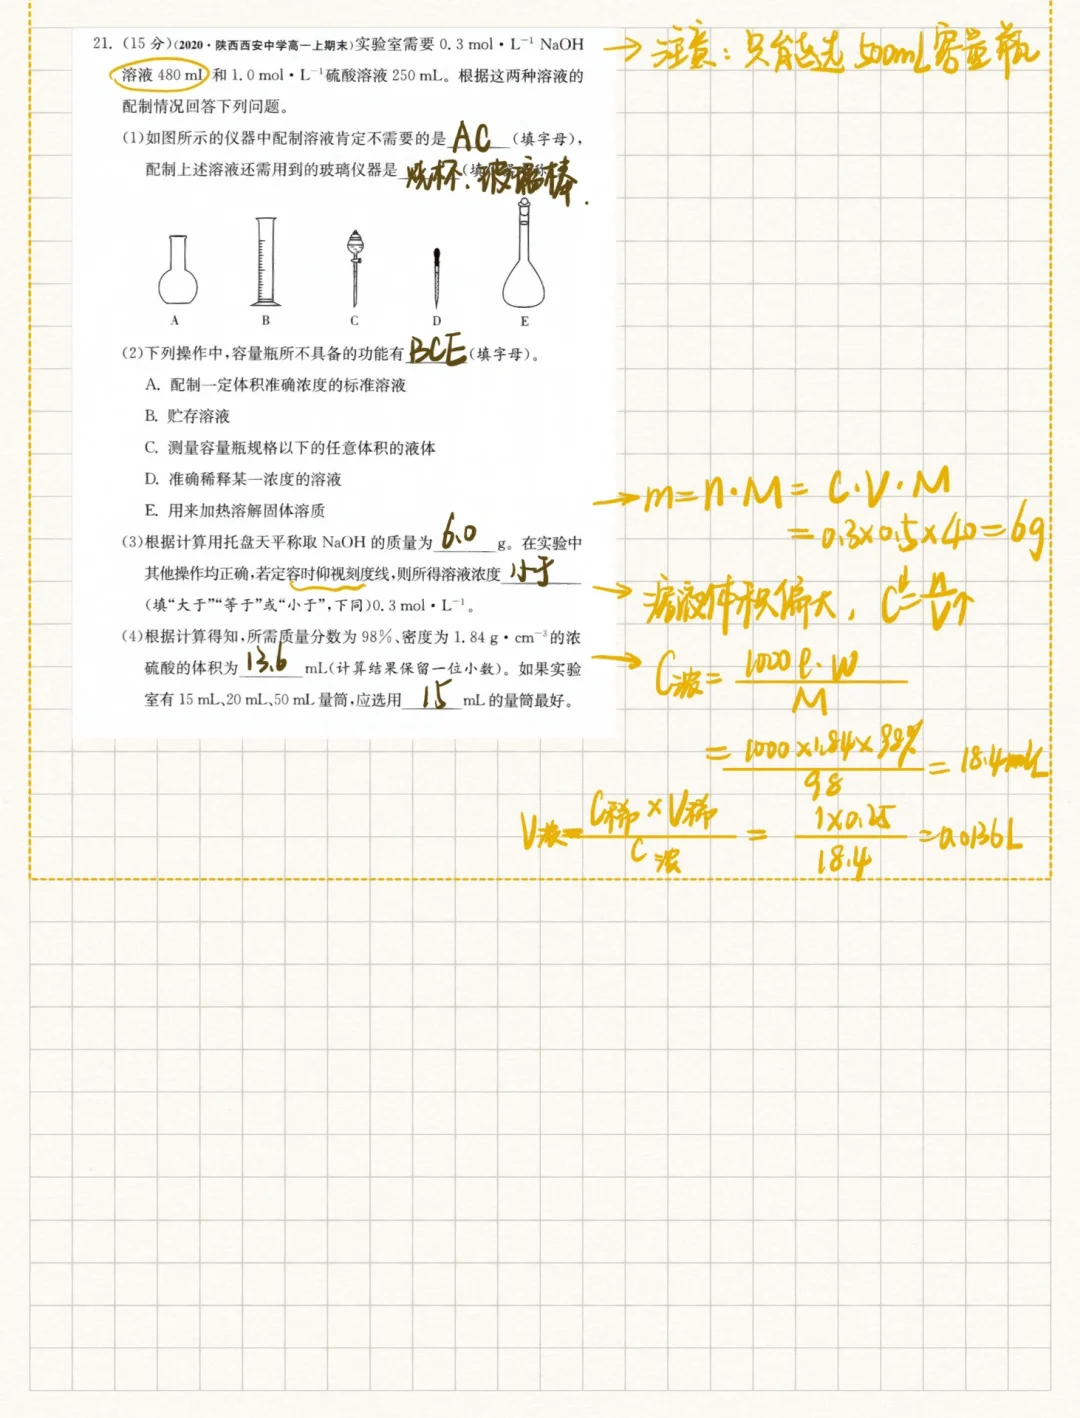 21. (15 分)(2020・陕西西安中学高一上期末)实验室需要 0.3 mol・L⁻¹ NaOH
溶液 480 mL 和 1.0 mol・L⁻¹硫酸溶液 250 mL。根据这两种溶液的
配制情况回答下列问题。
→ 注意：只能选 500mL 容量瓶
(1)如图所示的仪器中配制溶液肯定不需要的是 AC (填字母),
配制上述溶液还需用到的玻璃仪器是 烧杯、玻璃棒.
A B C D E
(2)下列操作中,容量瓶所不具备的功能有 BCE (填字母)。
A. 配制一定体积准确浓度的标准溶液
B. 贮存溶液
C. 测量容量瓶规格以下的任意体积的液体
D. 准确稀释某一浓度的溶液
E. 用来加热溶解固体溶质
→ m=n·M= C·V·M
=0.3×0.5×40=6g
(3)根据计算用托盘天平称取 NaOH 的质量为 6.0 g。在实验中
其他操作均正确,若定容时仰视刻度线,则所得溶液浓度 小于
(填“大于”“等于”或“小于”,下同)0.3 mol・L⁻¹。
→ 溶液体积偏大, C↓= n/V↑
(4)根据计算得知,所需质量分数为 98%、密度为 1.84 g・cm⁻³的浓
硫酸的体积为 13.6 mL(计算结果保留一位小数)。如果实验
室有 15 mL、20 mL、50 mL 量筒,应选用 15 mL 的量筒最好。
→ C浓= 1000ρ·w / M
= 1000×1.84×98% / 98 = 18.4mol/L
V浓= C稀×V稀 / C浓 = 1×0.25 / 18.4 =0.0136L